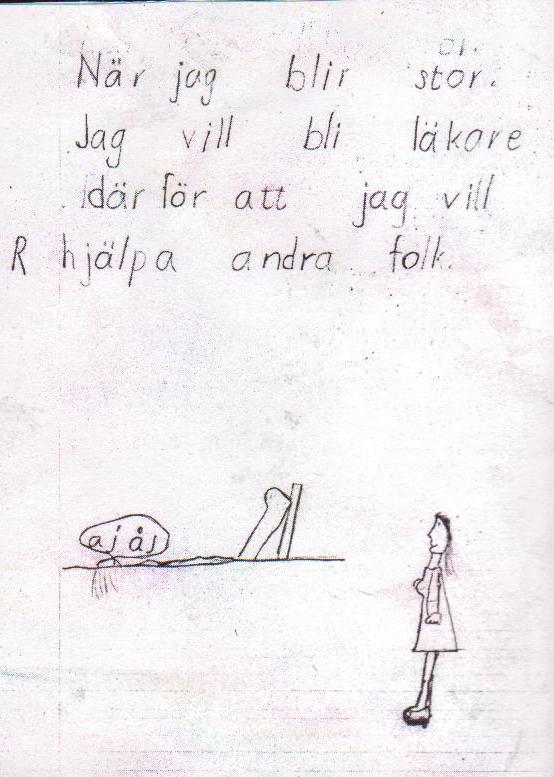 När jag blir stor.
Jag vill bli läkare
därför att jag vill
R hjälpa andra folk.
aj åj